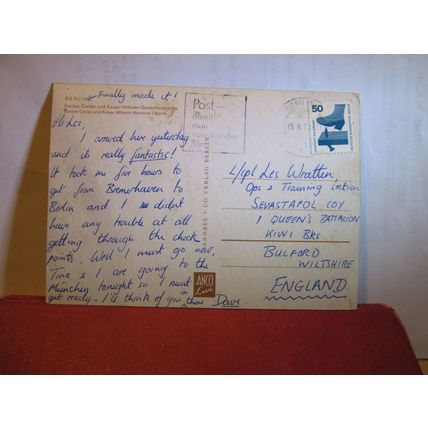 BERLIN - Finally made it!
Europa Center und Kaiser-Wilhelm-Gedächtniskirche
Europa Center and Kaiser Wilhelm Memorial Church
Hi Les,
I arrived here yesterday
and its really fantastic!
It took me five hours to
get from Bremerhaven to
Berlin and I didn't
have any trouble at all
getting through the check
points. Well I must go now,
Tina & I are going to the
München tonight so I must
get ready - I'll think of you in there Dave.
ANDRES + CO VERLAG BERLIN
ANCO
Post-
damit
man
voneinander
hört
50
L/cpl Les Wrattin,
Ops & Training section
SEVASTAPOL COY
1 QUEEN'S BATTALION
KIWI BKS
BULFORD
WILTSHIRE
ENGLAND